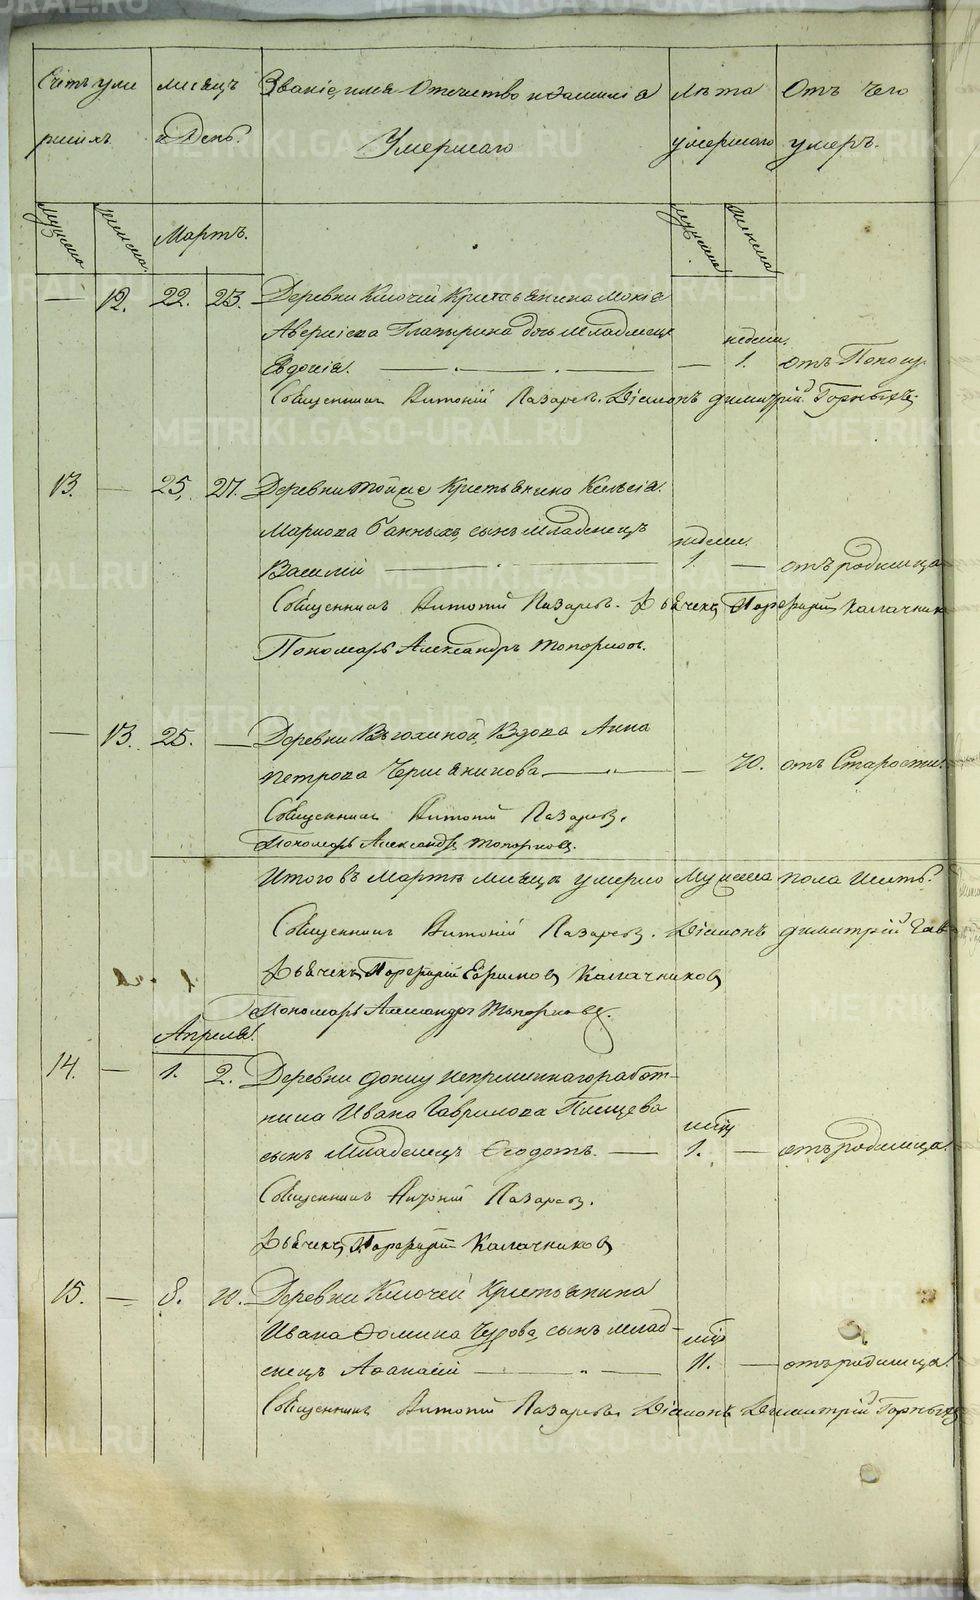 Счетъ уме
ршихъ.
Мѣсяцъ
и День.
Званіе, имя Отечество и фамилія
Умершаго
Лѣта
умершаго
Отъ чего
умеръ.
мужеска
женска
Мартъ.
мужеска
женска
— 12. 22. 23. Деревни Ключей Крестьянина Мокія
Аверкіева Глатырина дочь младенецъ недели.
Евдокія. — — — 1. отъ Поносу.
Священникъ Антоній Лазаревъ. Діаконъ Димитрій Горныхъ.
13. — 25. 27. Деревни Крестьянина
Маркова Банныхъ, сынъ младенецъ недели.
Василій — 1. — отъ родимца
Священникъ Антоній Лазаревъ. Дьячекъ Порфирій Калачник
Пономарь Александръ Топорковъ.
— 13. 25. — Деревни Вьюхиной, Вдова Анна
Петрова Чермянинова — — 70. отъ Старости.
Священникъ Антоній Лазаревъ.
Пономарь Александръ Топорковъ.
Итого въ Мартѣ мѣсяцѣ умерло Мужеска пола шесть.
Священникъ Антоній Лазаревъ. Діаконъ Димитрій
Дьячекъ Порфирій Ефимовъ Калачниковъ
Пономарь Александръ Топорковъ.
Апреля.
14. — 1. 2. Деревни непременнаго работ-
ника Ивана Гаврилова Плещева мсц
сынъ Младенецъ Феодотъ. — 1. — отъ родимца.
Священникъ Антоній Лазаревъ.
Дьячекъ Порфирій Калачниковъ
15. — 8. 10. Деревни Ключей Крестьянина
Ивана Фомина Чузова, сынъ млад- мсц
енецъ Афанасій — — 11. — отъ родимца.
Священникъ Антоній Лазаревъ. Діаконъ Димитрій Горныхъ
METRIKI.GASO-URAL.RU